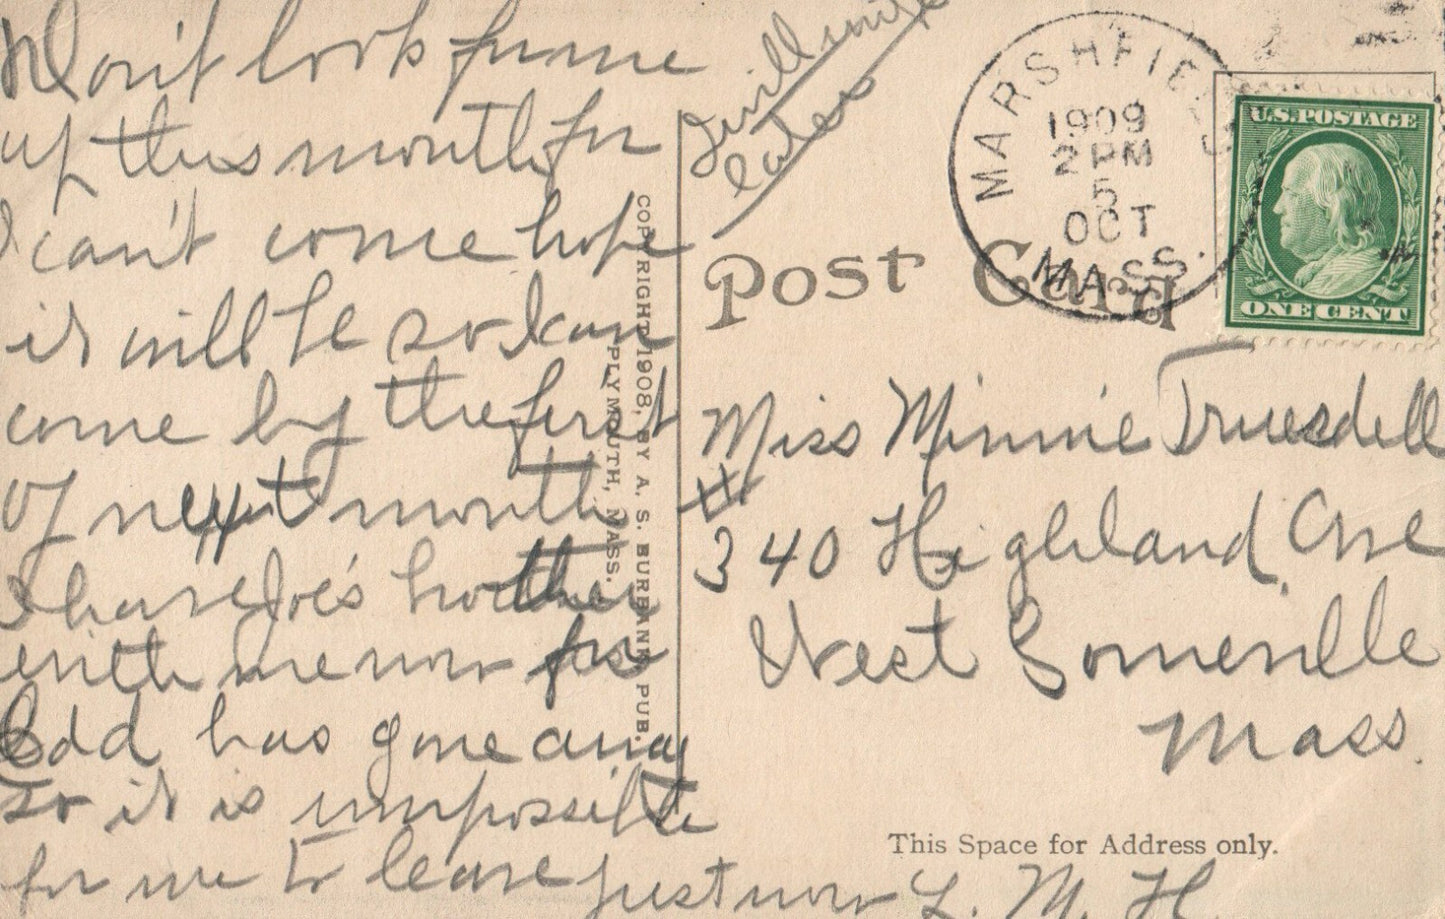 Don't look for me
up this month for
I can't come hope
it will be so I can
come by the first
of next month
I have Joe's brother
with me now for
Edd has gone away
so it is impossible
for me to leave just now L. M. H
I will write
later
COPYRIGHT 1908, BY A. S. BURBANK PUB.
PLYMOUTH, MASS.
Post Card
MARSHFIELD
1909
2 PM
5
OCT
MASS.
U.S. POSTAGE
ONE CENT
Miss Minnie Truesdell
# 340 Highland Ave
West Somerville
Mass
This Space for Address only.